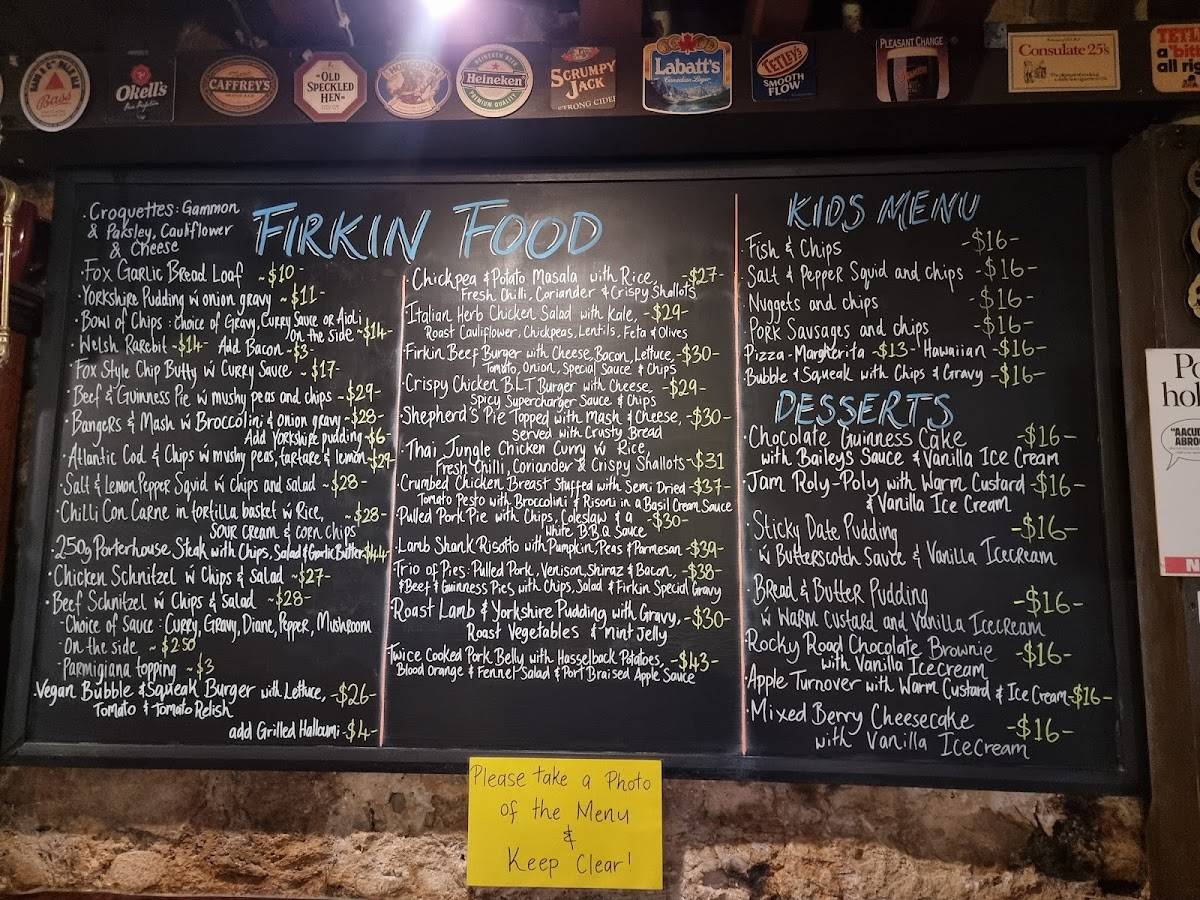 BASS & CO'S PALE ALE
Bass
Okells
CAFFREY'S
OLD
SPECKLED
HEN
Heineken
PREMIUM QUALITY
SCRUMPY
JACK
STRONG CIDER
Labatt's
Canadian Lager
TETLEY'S
SMOOTH
FLOW
PLEASANT CHANGE
Consulate 25's
TETL
a 'bit
all rig
FIRKIN FOOD
· Croquettes: Gammon
& Parsley, Cauliflower
& Cheese
· Fox Garlic Bread Loaf ~$10-
· Yorkshire Pudding w onion gravy ~$11-
· Bowl of Chips: choice of Gravy, Curry Sauce or Aioli
/On the side ~$14-
· Welsh Rarebit -$14- Add Bacon -$3-
· Fox Style Chip Butty w Curry Sauce ~$17-
· Beef & Guinness Pie w mushy peas and chips -$29-
· Bangers & Mash w Broccolini & onion gravy -$28-
Add Yorkshire pudding -$6-
· Atlantic Cod & Chips w mushy peas, tartare & lemon -$29-
· Salt & Lemon Pepper Squid w chips and salad ~$28-
· Chilli Con Carne in tortilla basket w Rice, ~$28-
sour cream & corn chips
· 250g Porterhouse Steak with Chips, Salad & Garlic Butter $44-
· Chicken Schnitzel w Chips & Salad ~$27-
· Beef Schnitzel w Chips & Salad ~$28-
- Choice of Sauce: Curry, Gravy, Diane, Pepper, Mushroom
- On the side ~$2.50
- Parmigiana topping ~$3
· Vegan Bubble & Squeak Burger with Lettuce, -$26-
Tomato & Tomato Relish
add Grilled Halloumi -$4-
· Chickpea & Potato Masala with Rice, -$27-
Fresh Chilli, Coriander & Crispy Shallots
· Italian Herb Chicken Salad with Kale, -$29-
Roast Cauliflower, Chickpeas, Lentils, Feta & Olives
· Firkin Beef Burger with Cheese, Bacon, Lettuce, -$30-
Tomato, Onion, Special Sauce & Chips
· Crispy Chicken B.L.T Burger with Cheese, -$29-
Spicy Supercharger Sauce & Chips
· Shepherd's Pie Topped with Mash & Cheese, -$30-
Served with Crusty Bread
· Thai Jungle Chicken Curry w Rice
Fresh Chilli, Coriander & Crispy Shallots -$31
· Crumbed Chicken Breast Stuffed with Semi Dried -$37-
Tomato Pesto with Broccolini & Risoni in a Basil Cream Sauce
· Pulled Pork Pie with Chips, Coleslaw & a -$30-
White B.B.Q Sauce
· Lamb Shank Risotto with Pumpkin, Peas & Parmesan -$39-
· Trio of Pies: Pulled Pork, Venison, Shiraz & Bacon, -$38-
& Beef & Guinness Pies, with Chips, Salad & Firkin Special Gravy
· Roast Lamb & Yorkshire Pudding with Gravy, -$30-
Roast Vegetables & mint Jelly
· Twice Cooked Pork Belly with Hasselback Potatoes, -$43-
Blood Orange & Fennel Salad & Port Braised Apple Sauce
KIDS MENU
· Fish & Chips -$16-
· Salt & Pepper Squid and chips -$16-
· Nuggets and chips -$16-
· Pork Sausages and chips -$16-
· Pizza-Margherita -$13- Hawaiian -$16-
· Bubble & Squeak with Chips & Gravy -$16-
DESSERTS
· Chocolate Guinness Cake -$16-
with Baileys Sauce & Vanilla Ice Cream
· Jam Roly-Poly with Warm Custard -$16-
& Vanilla Ice Cream
· Sticky Date Pudding -$16-
w Butterscotch Sauce & Vanilla Icecream
· Bread & Butter Pudding -$16-
w Warm Custard and Vanilla Icecream
· Rocky Road Chocolate Brownie -$16-
with Vanilla Icecream
· Apple Turnover with Warm Custard & Ice Cream -$16-
· Mixed Berry Cheesecake -$16-
with Vanilla IceCream
Please take a Photo
of the Menu
&
Keep Clear!
Po
hol
"AACU
ABRO
N